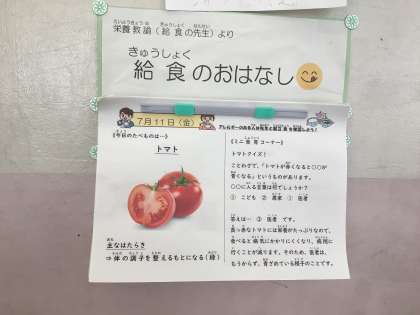 栄養教諭（給食の先生）より
給食のおはなし
7月11日（金）
《今日のたべものは…》
トマト
主なはたらき
⇒体の調子を整えるもとになる（緑）
トマトクイズ！
ことわざで、「トマトが赤くなると〇〇が
青くなる」というものがあります。
〇〇に入る言葉は何でしょうか？
① こども ② 農家 ③ 医者
答えは… ③ 医者 です。
真っ赤なトマトには栄養がたっぷりなので、
食べると病気にかかりにくくなり、病院に
行くことが減ります。そのため、医者は、
もうからず、青ざめている様子のことです。